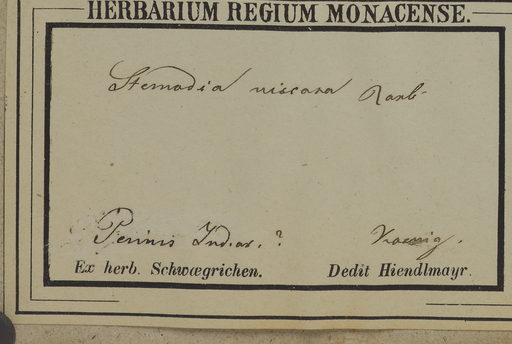 HERBARIUM REGIUM MONACENSE.
Stemodia viscosa Roxb.
Penins Indiar. ? Koenig.
Ex herb. Schwægrichen. Dedit Hiendlmayr.